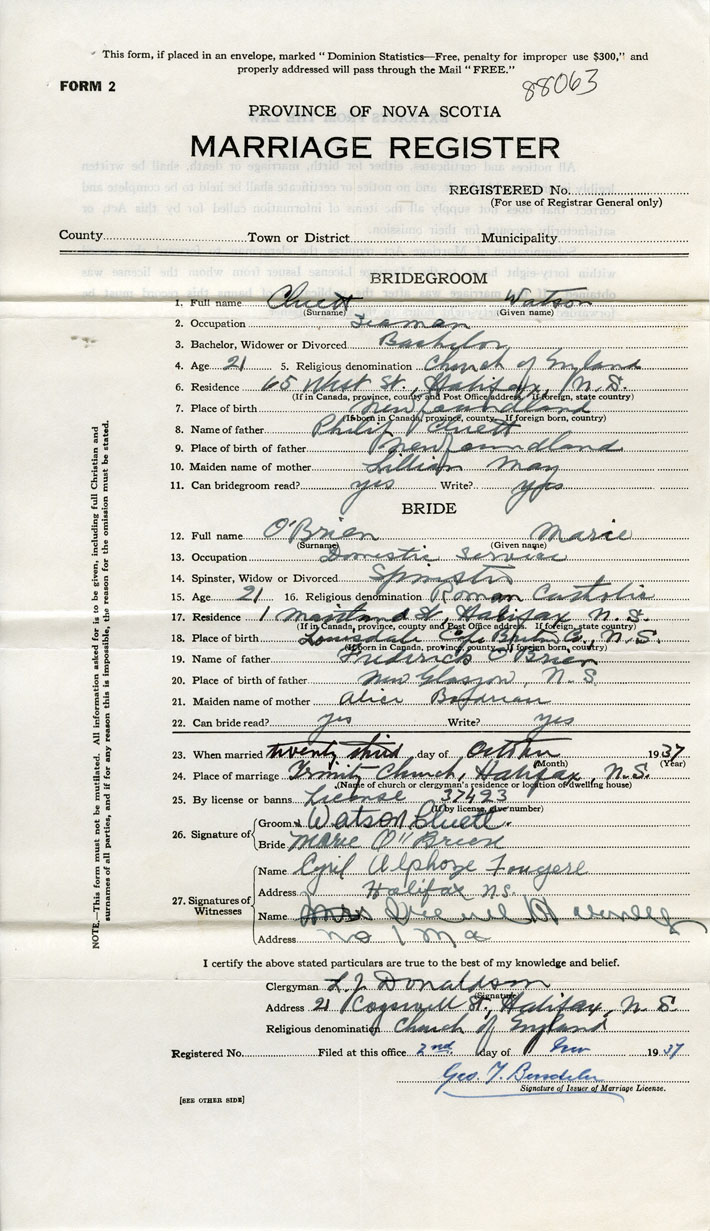 This form, if placed in an envelope, marked “ Dominion Statistics—Free, penalty for improper use $300,” and
properly addressed will pass through the Mail “ FREE.”
FORM 2
88063
PROVINCE OF NOVA SCOTIA
MARRIAGE REGISTER
REGISTERED No.
(For use of Registrar General only)
County Town or District Municipality
BRIDEGROOM
1. Full name Cluett Watson
(Surname) (Given name)
2. Occupation Seaman
3. Bachelor, Widower or Divorced Bachelor
4. Age 21 5. Religious denomination Church of England
6. Residence 65 West St, Halifax, N.S.
(If in Canada, province, county and Post Office address. If foreign, state country)
7. Place of birth Newfoundland
(If born in Canada, province, county. If foreign born, country)
8. Name of father Philip Cluett
9. Place of birth of father Newfoundland
10. Maiden name of mother Lillian May
11. Can bridegroom read? yes Write? yes
BRIDE
12. Full name O'Brien Marie
(Surname) (Given name)
13. Occupation Domestic Service
14. Spinster, Widow or Divorced Spinster
15. Age 21 16. Religious denomination Roman Catholic
17. Residence 1 Maitland St, Halifax N.S.
(If in Canada, province, county and Post Office address. If foreign, state country)
18. Place of birth Cape Breton Co., N.S.
(If born in Canada, province, county. If foreign born, country)
19. Name of father Frederick O'Brien
20. Place of birth of father New Glasgow, N.S.
21. Maiden name of mother Alice
22. Can bride read? yes Write? yes
23. When married twenty third day of October 1937
(Month) (Year)
24. Place of marriage Trinity Church, Halifax, N.S.
(Name of church or clergyman's residence or location of dwelling house)
25. By license or banns License 37493
(If by license, give number)
26. Signature of Groom Watson Cluett.
Bride Marie O'Brien
27. Signatures of Witnesses
Name Cyril Alphonze Fougere
Address Halifax N.S.
Name Mrs
Address No 1 Ma
I certify the above stated particulars are true to the best of my knowledge and belief.
Clergyman L. J. Donaldson
(Signature)
Address 21 Cogswell St, Halifax, N.S.
Religious denomination Church of England
Registered No. Filed at this office 2nd. day of Nov 1937
Geo. T.
Signature of Issuer of Marriage License.
[SEE OTHER SIDE]
NOTE.—This form must not be mutilated. All information asked for is to be given, including full Christian and
surnames of all parties, and if for any reason this is impossible, the reason for the omission must be stated.